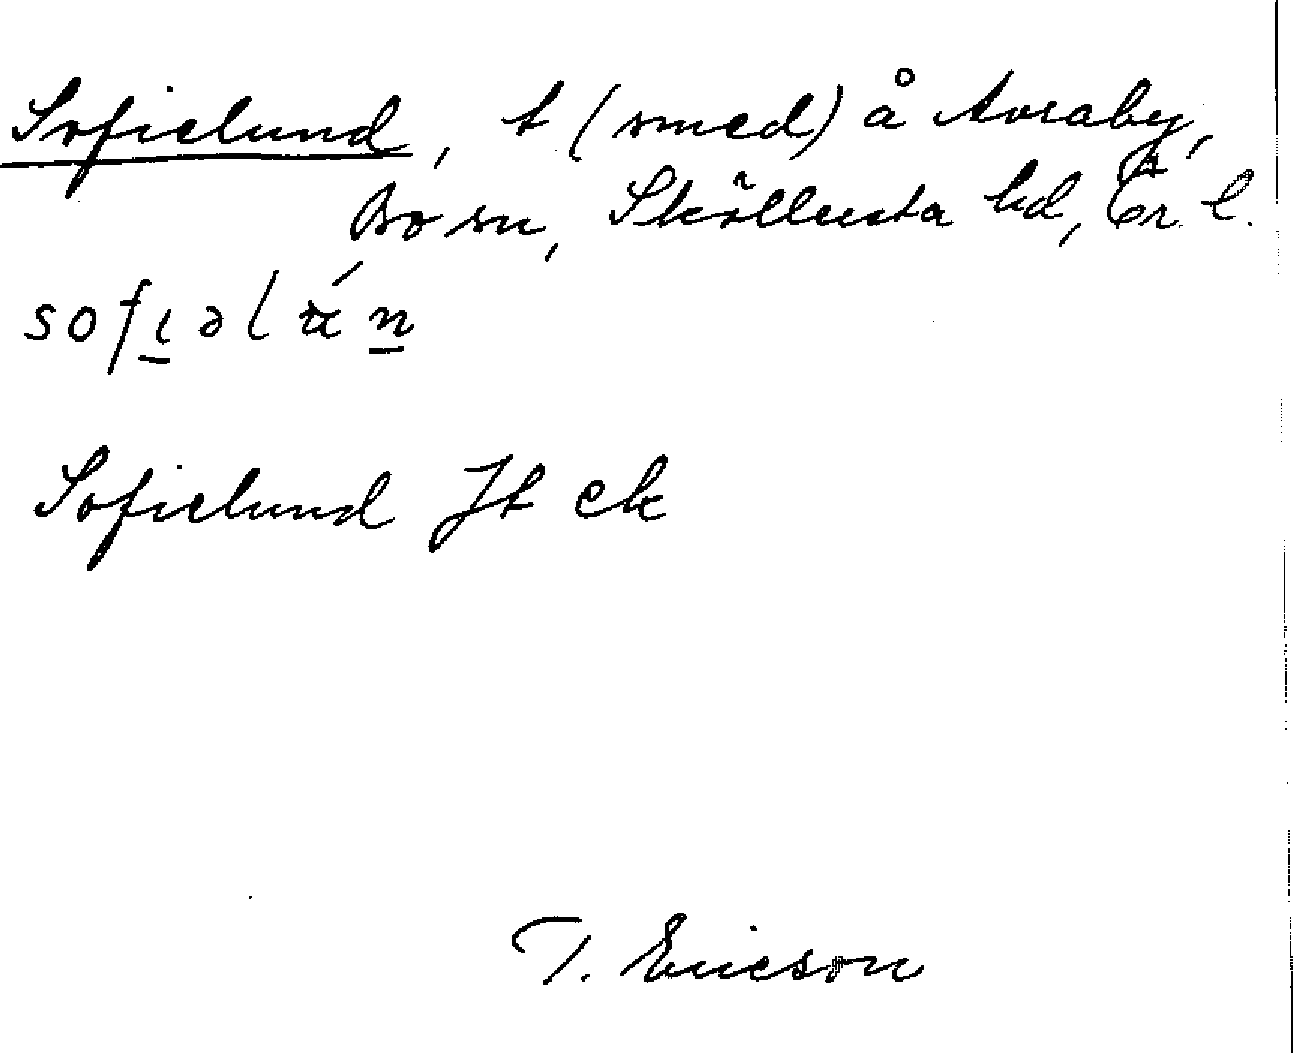 Sofielund, t (smed) å Avraby,
Bo sn, Sköllersta hd, Ör l.
Sofielund Jt ek
T. Ericson